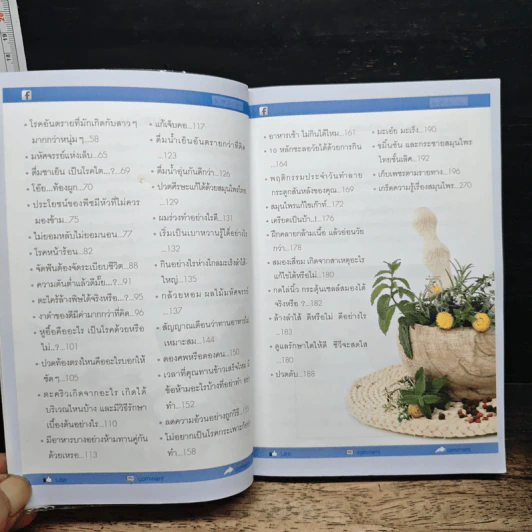 • โรคอันตรายที่มักเกิดกับสาวๆ
มากกว่าหนุ่มๆ...58
• มหัศจรรย์แห่งเต็บ...65
• ดื่มชาเย็น เป็นโรคไต...?...69
• โอ๊ย...ท้องผูก...70
• ประโยชน์ของพืชมีหัวที่ไม่ควร
มองข้าม...75
• ไม่ยอมหลับไม่ยอมนอน...77
• โรคหน้าร้อน...82
• จัดฟันต้องจัดระเบียบชีวิต...88
• ความดันต่ำแล้วดีมั้ย...?...91
• ตะไคร้ล้างพิษได้จริงหรือ...?...95
• งาดำของดีมีค่ามากกว่าที่คิด...96
• หูอื้อคืออะไร เป็นโรคด้วยหรือ
ไม่..?...101
• ปวดท้องตรงไหนคืออะไรบอกให้
ชัดๆ...105
• ตะคริวเกิดจากอะไร เกิดได้
บริเวณไหนบ้าง และมีวิธีรักษา
เบื้องต้นอย่างไร...110
• มีอาหารบางอย่างห้ามทานคู่กัน
ด้วยเหรอ...113
Like
comment
• แก้เจ็บคอ...117
• ดื่มน้ำเย็นอันตรายกว่าที่คิด
...123
• ดื่มน้ำอุ่นกันดีกว่า...126
• ปวดศีรษะแก้ได้ด้วยสมุนไพรไทย
...129
• ผมร่วงทำอย่างไรดี...131
• เริ่มเป็นเบาหวานรู้ได้อย่างไร
...132
• กินอย่างไรห่างไกลมะเร็งลำไส้
ใหญ่...135
• กล้วยหอม ผลไม้มหัศจรรย์
...137
• สัญญาณเตือนว่าทานอาหารไม่
เหมาะสม...144
• ดองศพหรือดองคน...150
• เวลาที่คุณทานข้าวเสร็จใหม่
ข้อห้ามอะไรบ้างที่อย่าทำ
ทำ...152
• ลดความอ้วนอย่างถูกวิธี
• ไม่อยากเป็นโรคกระเพาะ
ทำ...158
• อาหารเช้า ไม่กินได้ไหม...161
• 16 หลักชะลอวัยได้ด้วยการกิน
...164
• พฤติกรรมประจำวันทำลาย
กระดูกสันหลังของคุณ...169
• สมุนไพรแก้ไขเก๊าท์...172
• เครียดเป็นบ้า...!...176
• ฝึกคลายกล้ามเนื้อ แล้วย่อนวัย
กว่า...178
• สมองเสื่อม เกิดจากสาเหตุอะไร
แก้ไขได้หรือไม่...180
• กดไลน์ กระตุ้นเซลล์สมองได้
จริงหรือ ?...182
• ล้างลำไส้ ดีหรือไม่ ดีอย่างไร
...183
• ดูแลรักษาไตให้ดี ชีวีจะสดใส
...180
• ปวดตับ...188
• มะเฮ้ย มะเร็ง...190
• ขมิ้นชัน และกระชายสมุนไพร
ไทยชั้นเลิศ...192
• เก็บเพชรตามรายทาง...196
• เกร็ดความรู้เรื่องสมุนไพร...270
Like
comment